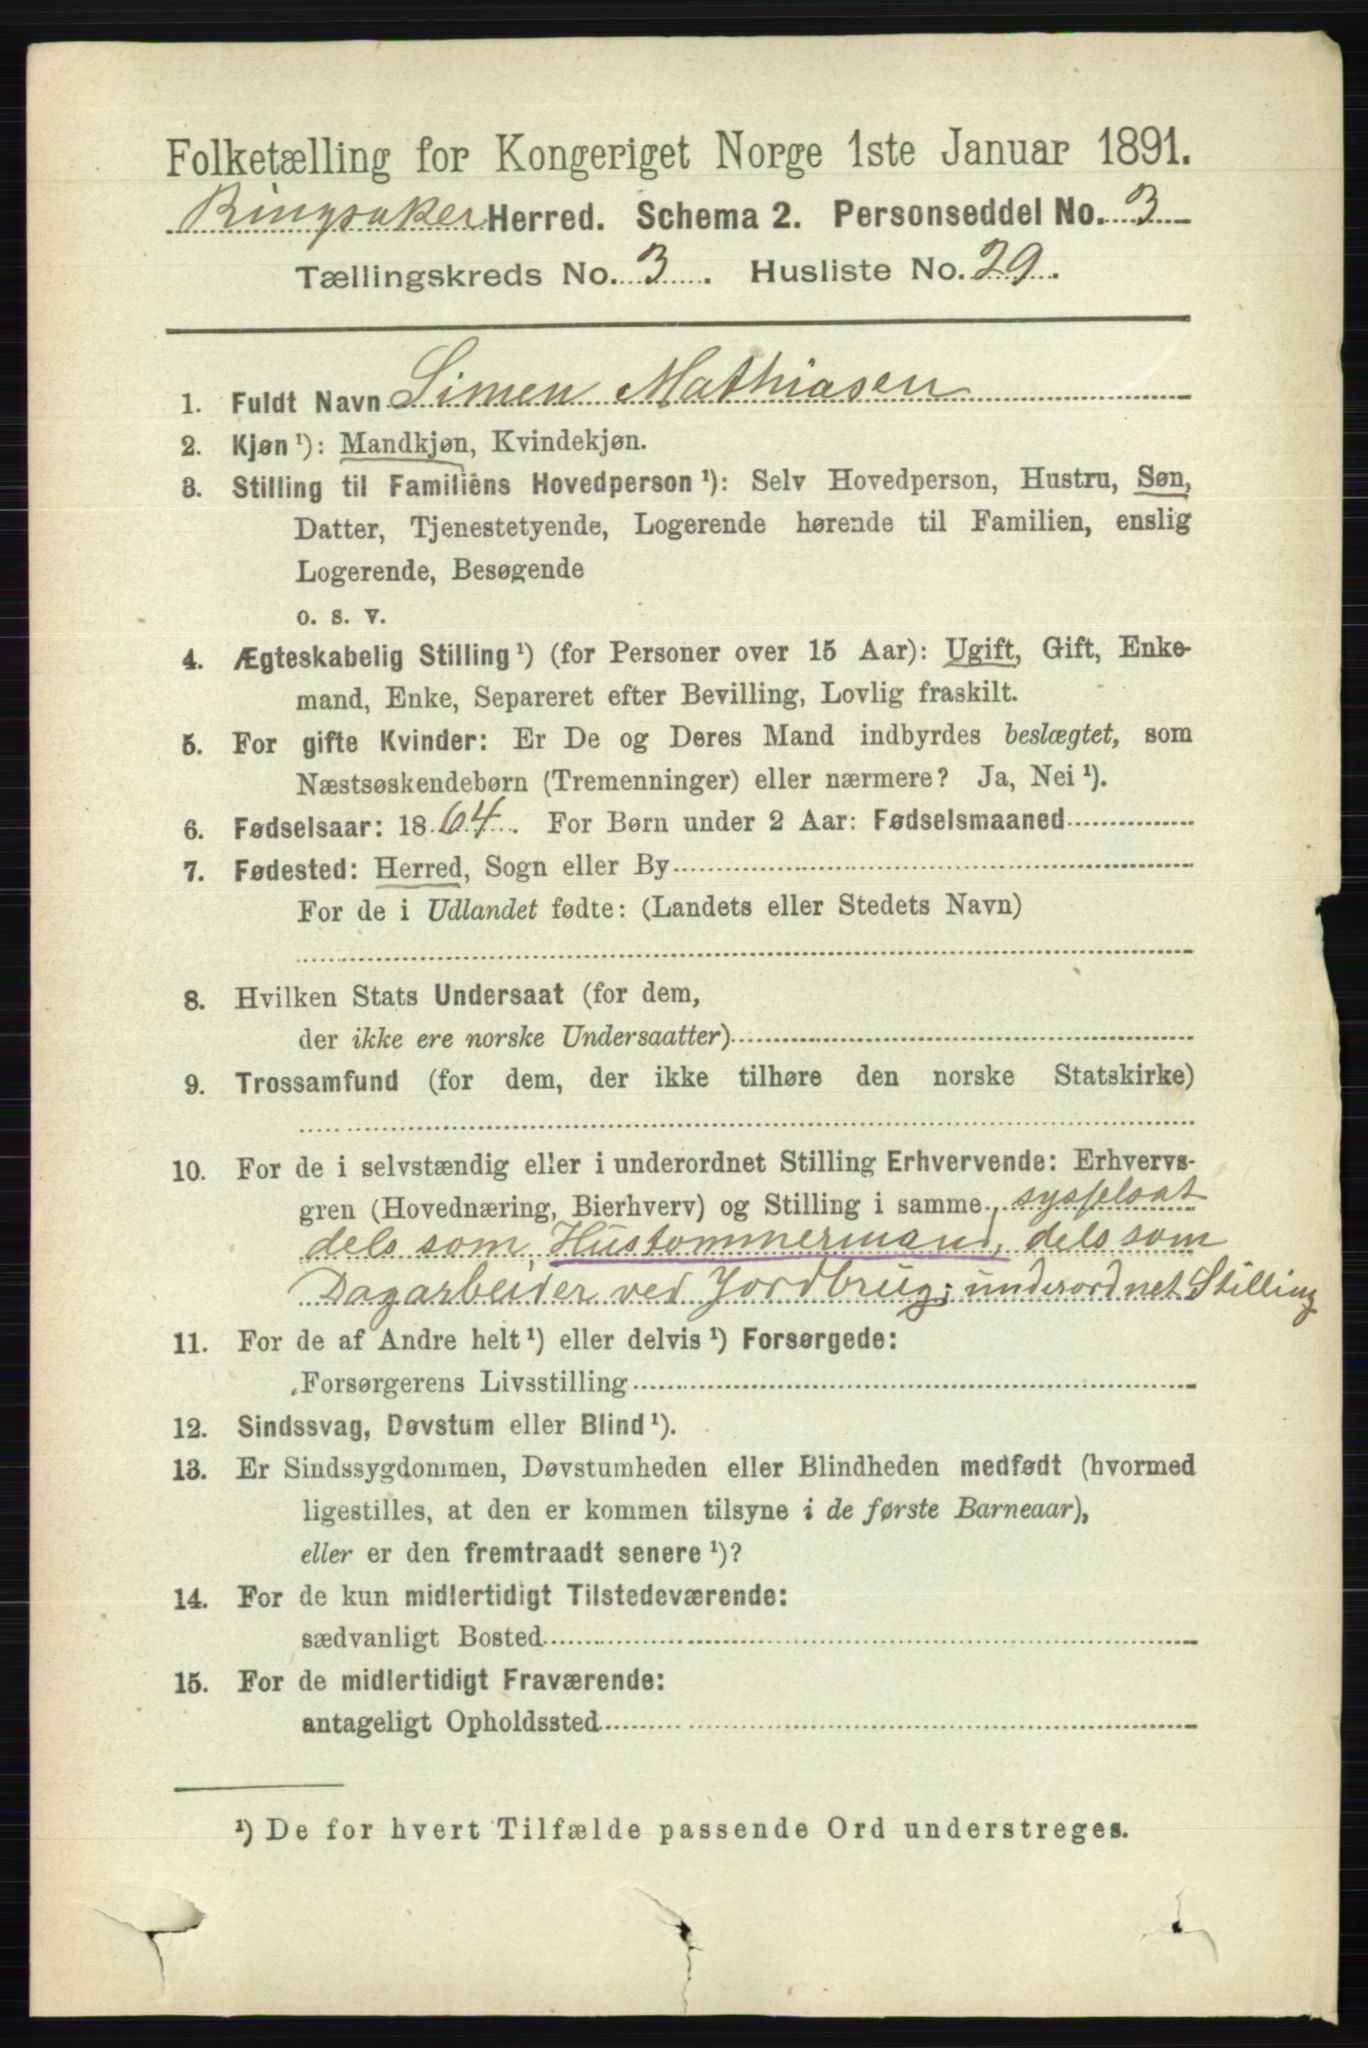 Folketælling for Kongeriget Norge 1ste Januar 1891.
Ringsaker Herred. Schema 2. Personseddel No. 3
Tællingskreds No. 3. Husliste No. 29.
1. Fuldt Navn Simen Mathiasen
2. Kjøn ¹): Mandkjøn, Kvindekjøn.
3. Stilling til Familiens Hovedperson ¹): Selv Hovedperson, Hustru, Søn,
Datter, Tjenestetyende, Logerende hørende til Familien, enslig
Logerende, Besøgende
o. s. v.
4. Ægteskabelig Stilling ¹) (for Personer over 15 Aar): Ugift, Gift, Enke-
mand, Enke, Separeret efter Bevilling, Lovlig fraskilt.
5. For gifte Kvinder: Er De og Deres Mand indbyrdes beslægtet, som
Næstsøskendebørn (Tremenninger) eller nærmere? Ja, Nei ¹).
6. Fødselsaar: 1864. For Børn under 2 Aar: Fødselsmaaned
7. Fødested: Herred, Sogn eller By
For de i Udlandet fødte: (Landets eller Stedets Navn)
8. Hvilken Stats Undersaat (for dem,
der ikke ere norske Undersaatter)
9. Trossamfund (for dem, der ikke tilhøre den norske Statskirke)
10. For de i selvstændig eller i underordnet Stilling Erhvervende: Erhvervs-
gren (Hovednæring, Bierhverv) og Stilling i samme, sysselsat
dels som Hustommermand, dels som
Dagarbeider ved Jordbrug; underordnet Stilling
11. For de af Andre helt ¹) eller delvis ¹) Forsørgede:
Forsørgerens Livsstilling
12. Sindssvag, Døvstum eller Blind ¹).
13. Er Sindssygdommen, Døvstumheden eller Blindheden medfødt (hvormed
ligestilles, at den er kommen tilsyne i de første Barneaar),
eller er den fremtraadt senere ¹)?
14. For de kun midlertidigt Tilstedeværende:
sædvanligt Bosted
15. For de midlertidigt Fraværende:
antageligt Opholdssted
¹) De for hvert Tilfælde passende Ord understreges.